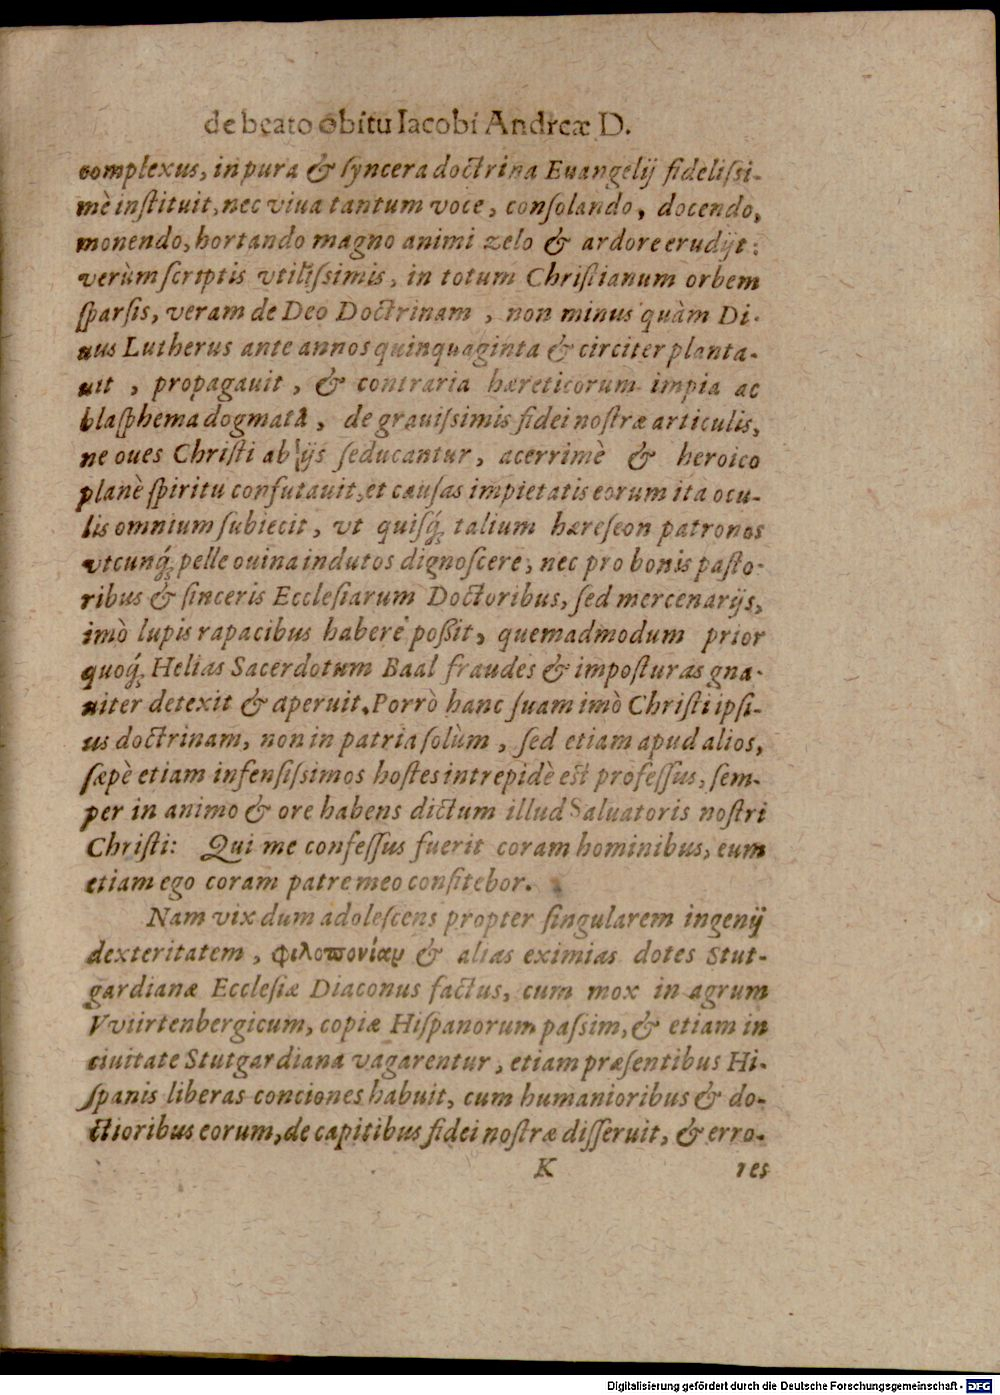 de beato obitu Iacobi Andreæ D.
complexus, in pura & ſyncera doctrina Euangelij fideliſsi-
mè inſtituit, nec viua tantum voce, conſolando, docendo,
monendo, hortando magno animi zelo & ardore erudijt:
verùm ſcriptis vtiliſsimis, in totum Chriſtianum orbem
ſparſis, veram de Deo Doctrinam, non minus quàm Di-
uus Lutherus ante annos quinquaginta & circiter planta-
uit, propagauit, & contraria hæreticorum impia ac
blaſphema dogmata, de grauiſsimis fidei noſtræ articulis,
ne oues Chriſti ab ijs ſeducantur, acerrimè & heroico
planè ſpiritu confutauit, et cauſas impietatis eorum ita ocu-
lis omnium ſubiecit, vt quiſq́ꝫ talium hæreſeon patronos
vtcunq́ꝫ pelle ouina indutos dignoſcere, nec pro bonis paſto-
ribus & ſinceris Eccleſiarum Doctoribus, ſed mercenarijs,
imò lupis rapacibus habere poßit, quemadmodum prior
quoq́ꝫ Helias Sacerdotum Baal fraudes & impoſturas gna-
uiter detexit & aperuit. Porrò hanc ſuam imò Chriſti ipſi-
us doctrinam, non in patria ſolùm, ſed etiam apud alios,
ſæpè etiam infenſiſsimos hoſtes intrepidè eſt profeſſus, ſem-
per in animo & ore habens dictum illud Saluatoris noſtri
Chriſti: Qui me confeſſus fuerit coram hominibus, eum
etiam ego coram patre meo confitebor.
Nam vix dum adoleſcens propter ſingularem ingenij
dexteritatem, φιλοπονίαν & alias eximias dotes Stut-
gardianæ Eccleſiæ Diaconus factus, cum mox in agrum
Vviirtenbergicum, copiæ Hiſpanorum paſsim, & etiam in
ciuitate Stutgardiana vagarentur, etiam præſentibus Hi-
ſpanis liberas conciones habuit, cum humanioribus & do-
ctioribus eorum, de capitibus fidei noſtræ diſſeruit, & erro-
K res
Digitalisierung gefördert durch die Deutsche Forschungsgemeinschaft - DFG